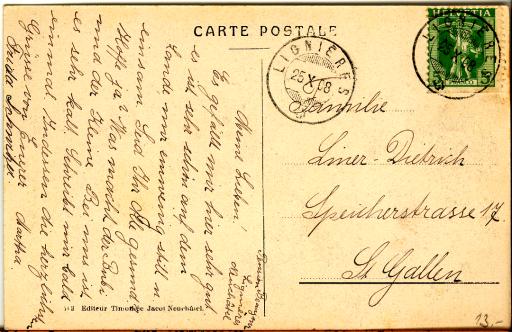 CARTE POSTALE
HELVETIA
LIGNIÈRES
25 X 08
LIGNIÈRES
25 X 08
Familie
Liner-Dietrich
Speicherstrasse 17.
St Gallen
Meine Lieben!
Es gefällt mir hier sehr gut
es ist sehr schön auf dem
Lande nur ein wenig still u
einsam. Seid Ihr alle gesund?
Hoffe ja! Was macht der Bubi
und der Kleine. Bei uns ist
es sehr kalt. Schreibt mir bald
einmal. Indessen die herzlichsten
Grüsse von Eurer Martha
Lignières
Neuchâtel
Editeur Timothée Jacot Neuchâtel.
13.-